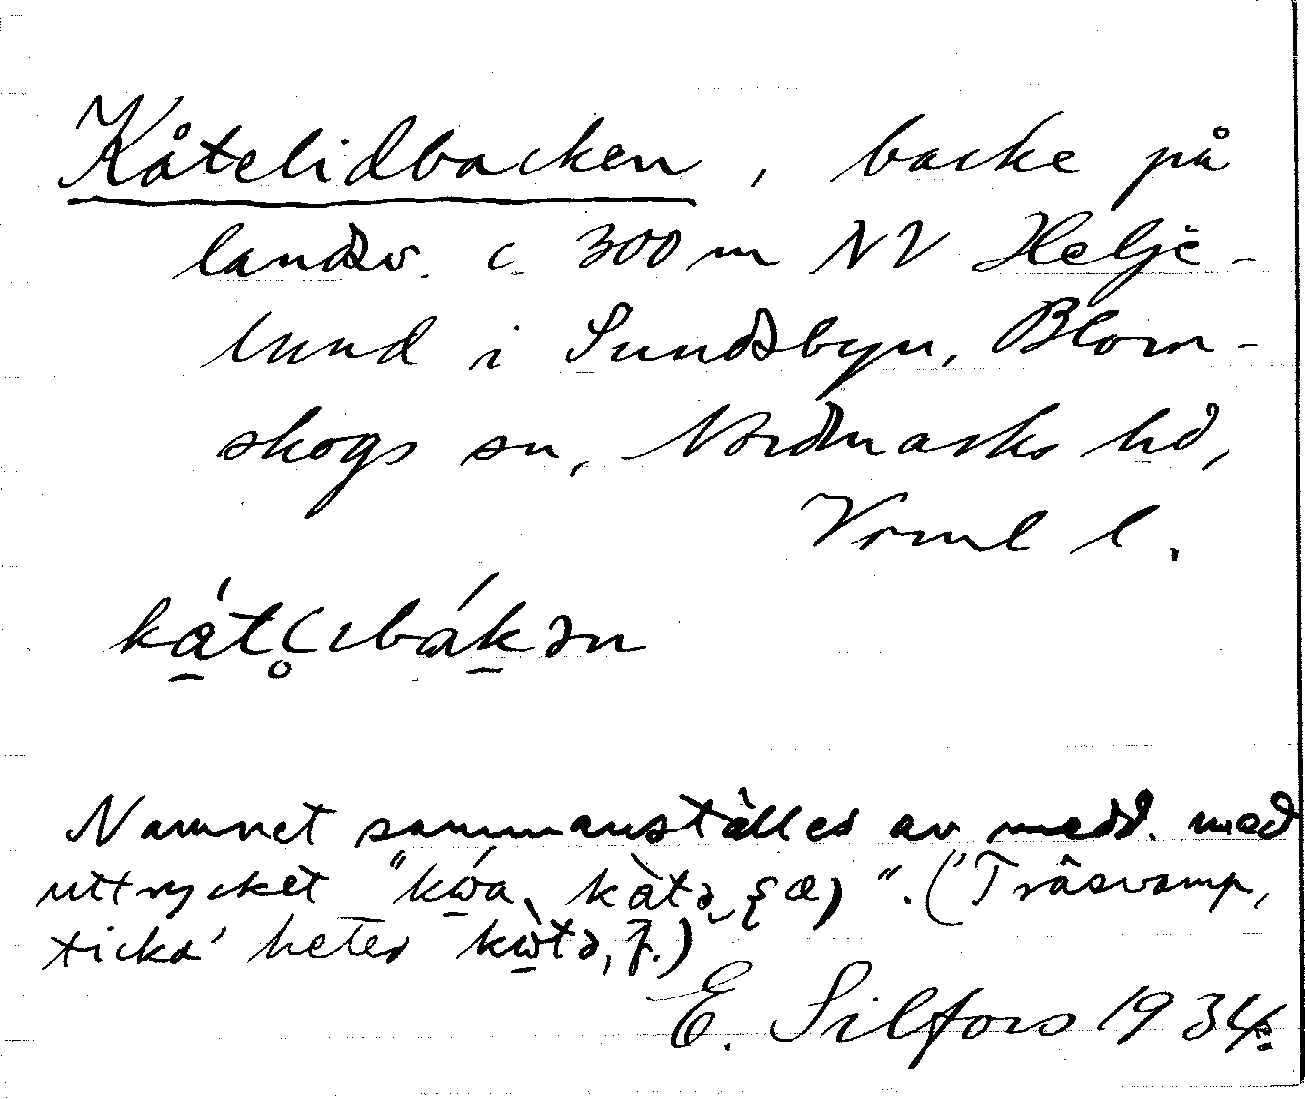 Kåtelidbacken, backe på
landsv. c. 300 m NV Helje-
lund i Sundsbyn, Blom-
skogs sn, Nordmarks hd,
Vrml l.
Namnet sammanställes av medd. med
uttrycket ". ('Träsvamp,
ticka' heter f.)
E. Silfors 1934.